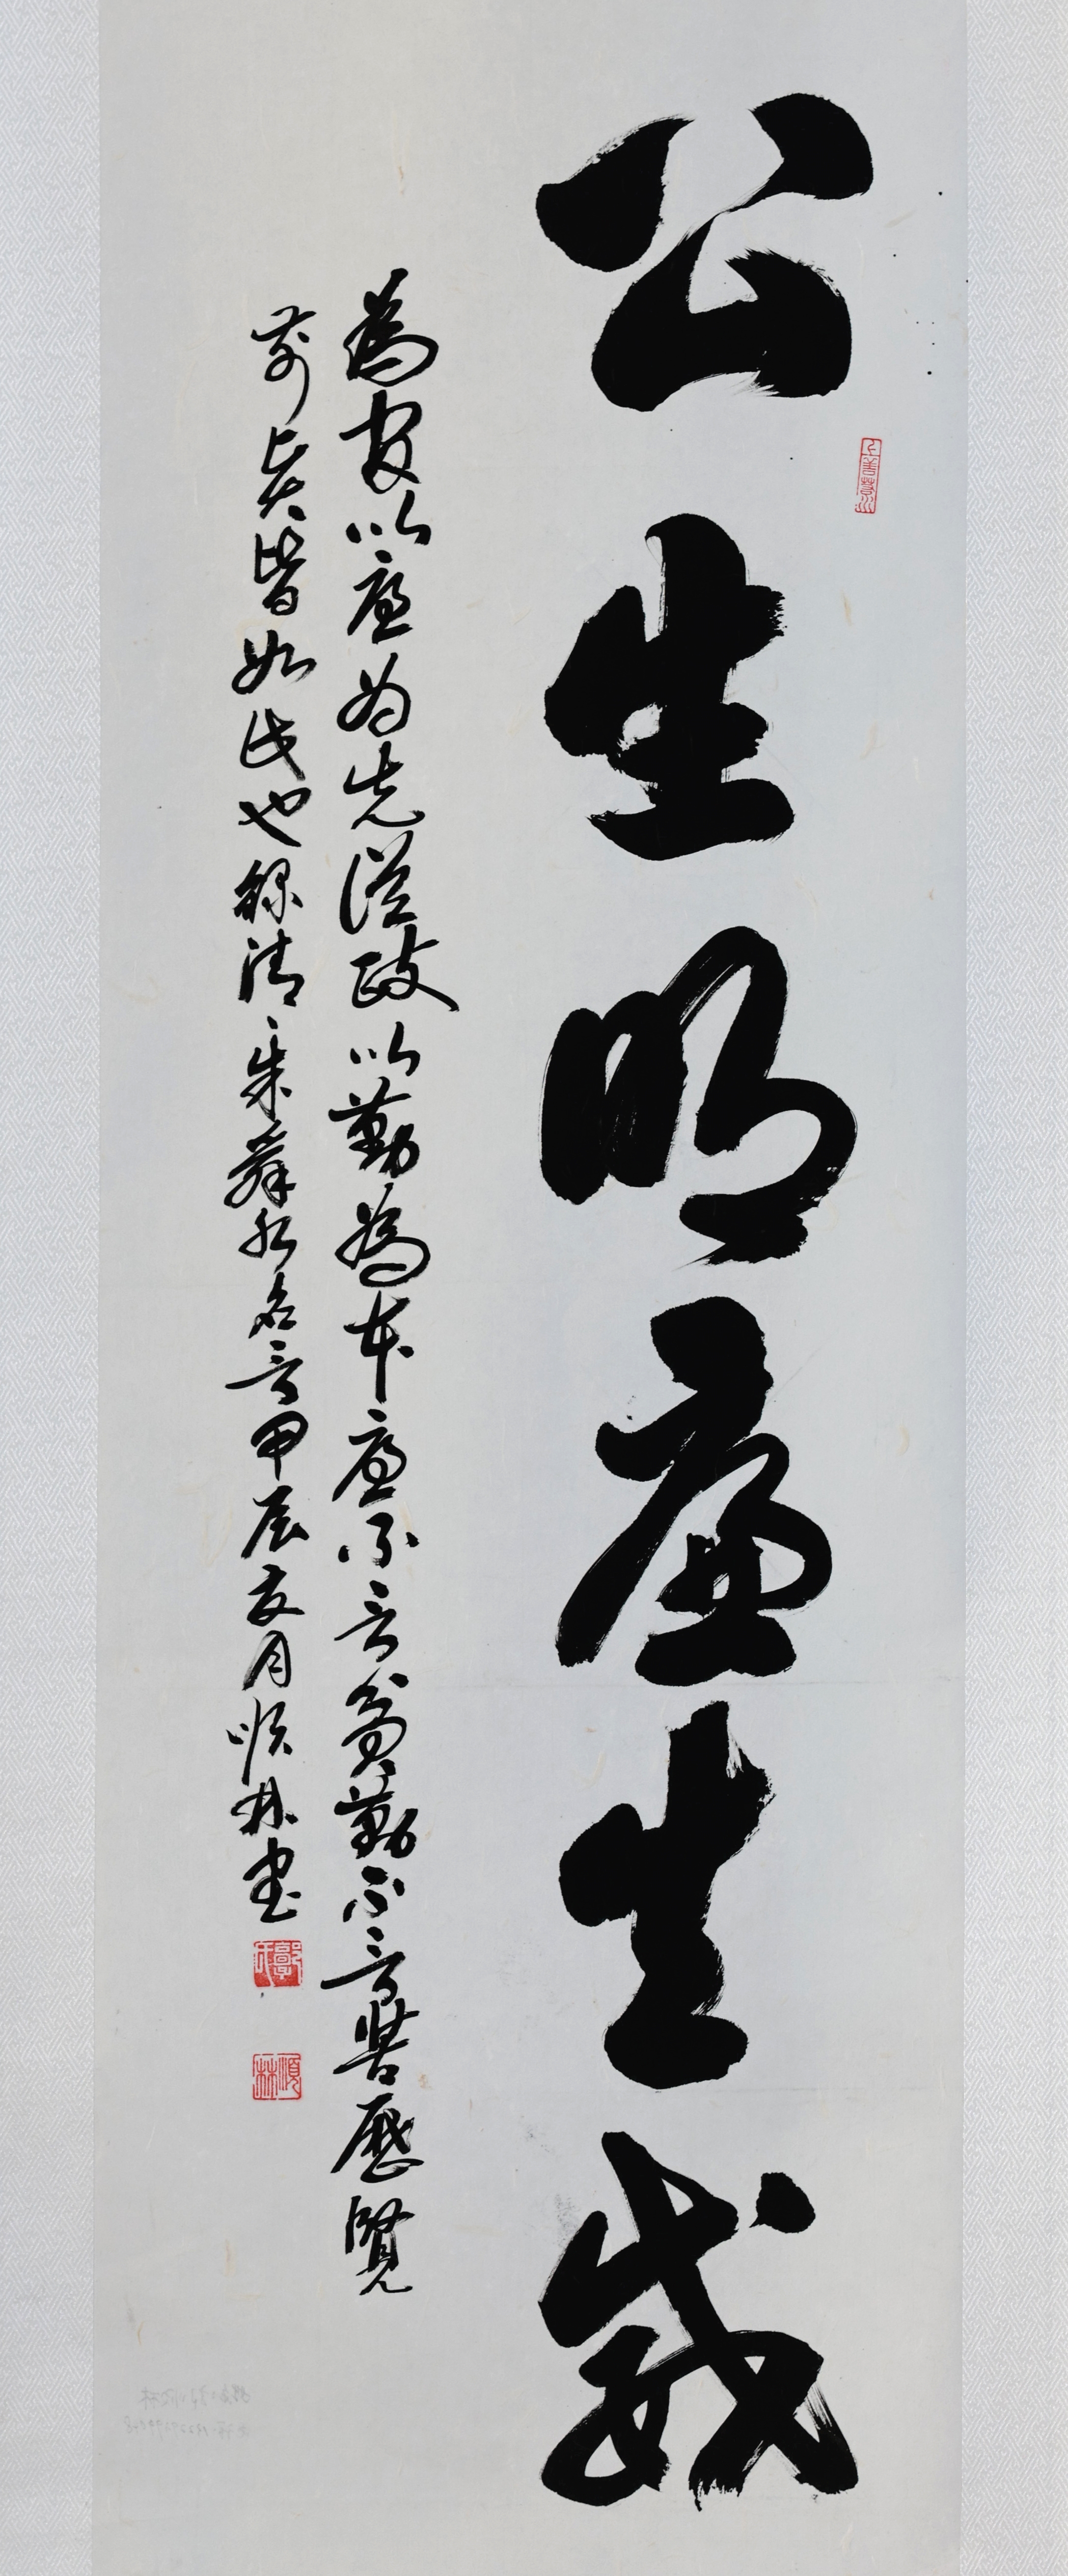 公生明廉生威
上善若水
為官以廉为先從政以勤為本廉不言貧勤不言苦歷覽
前賢皆如此也錄清朱舜水名言甲辰夏月順林書
郭氏
順林